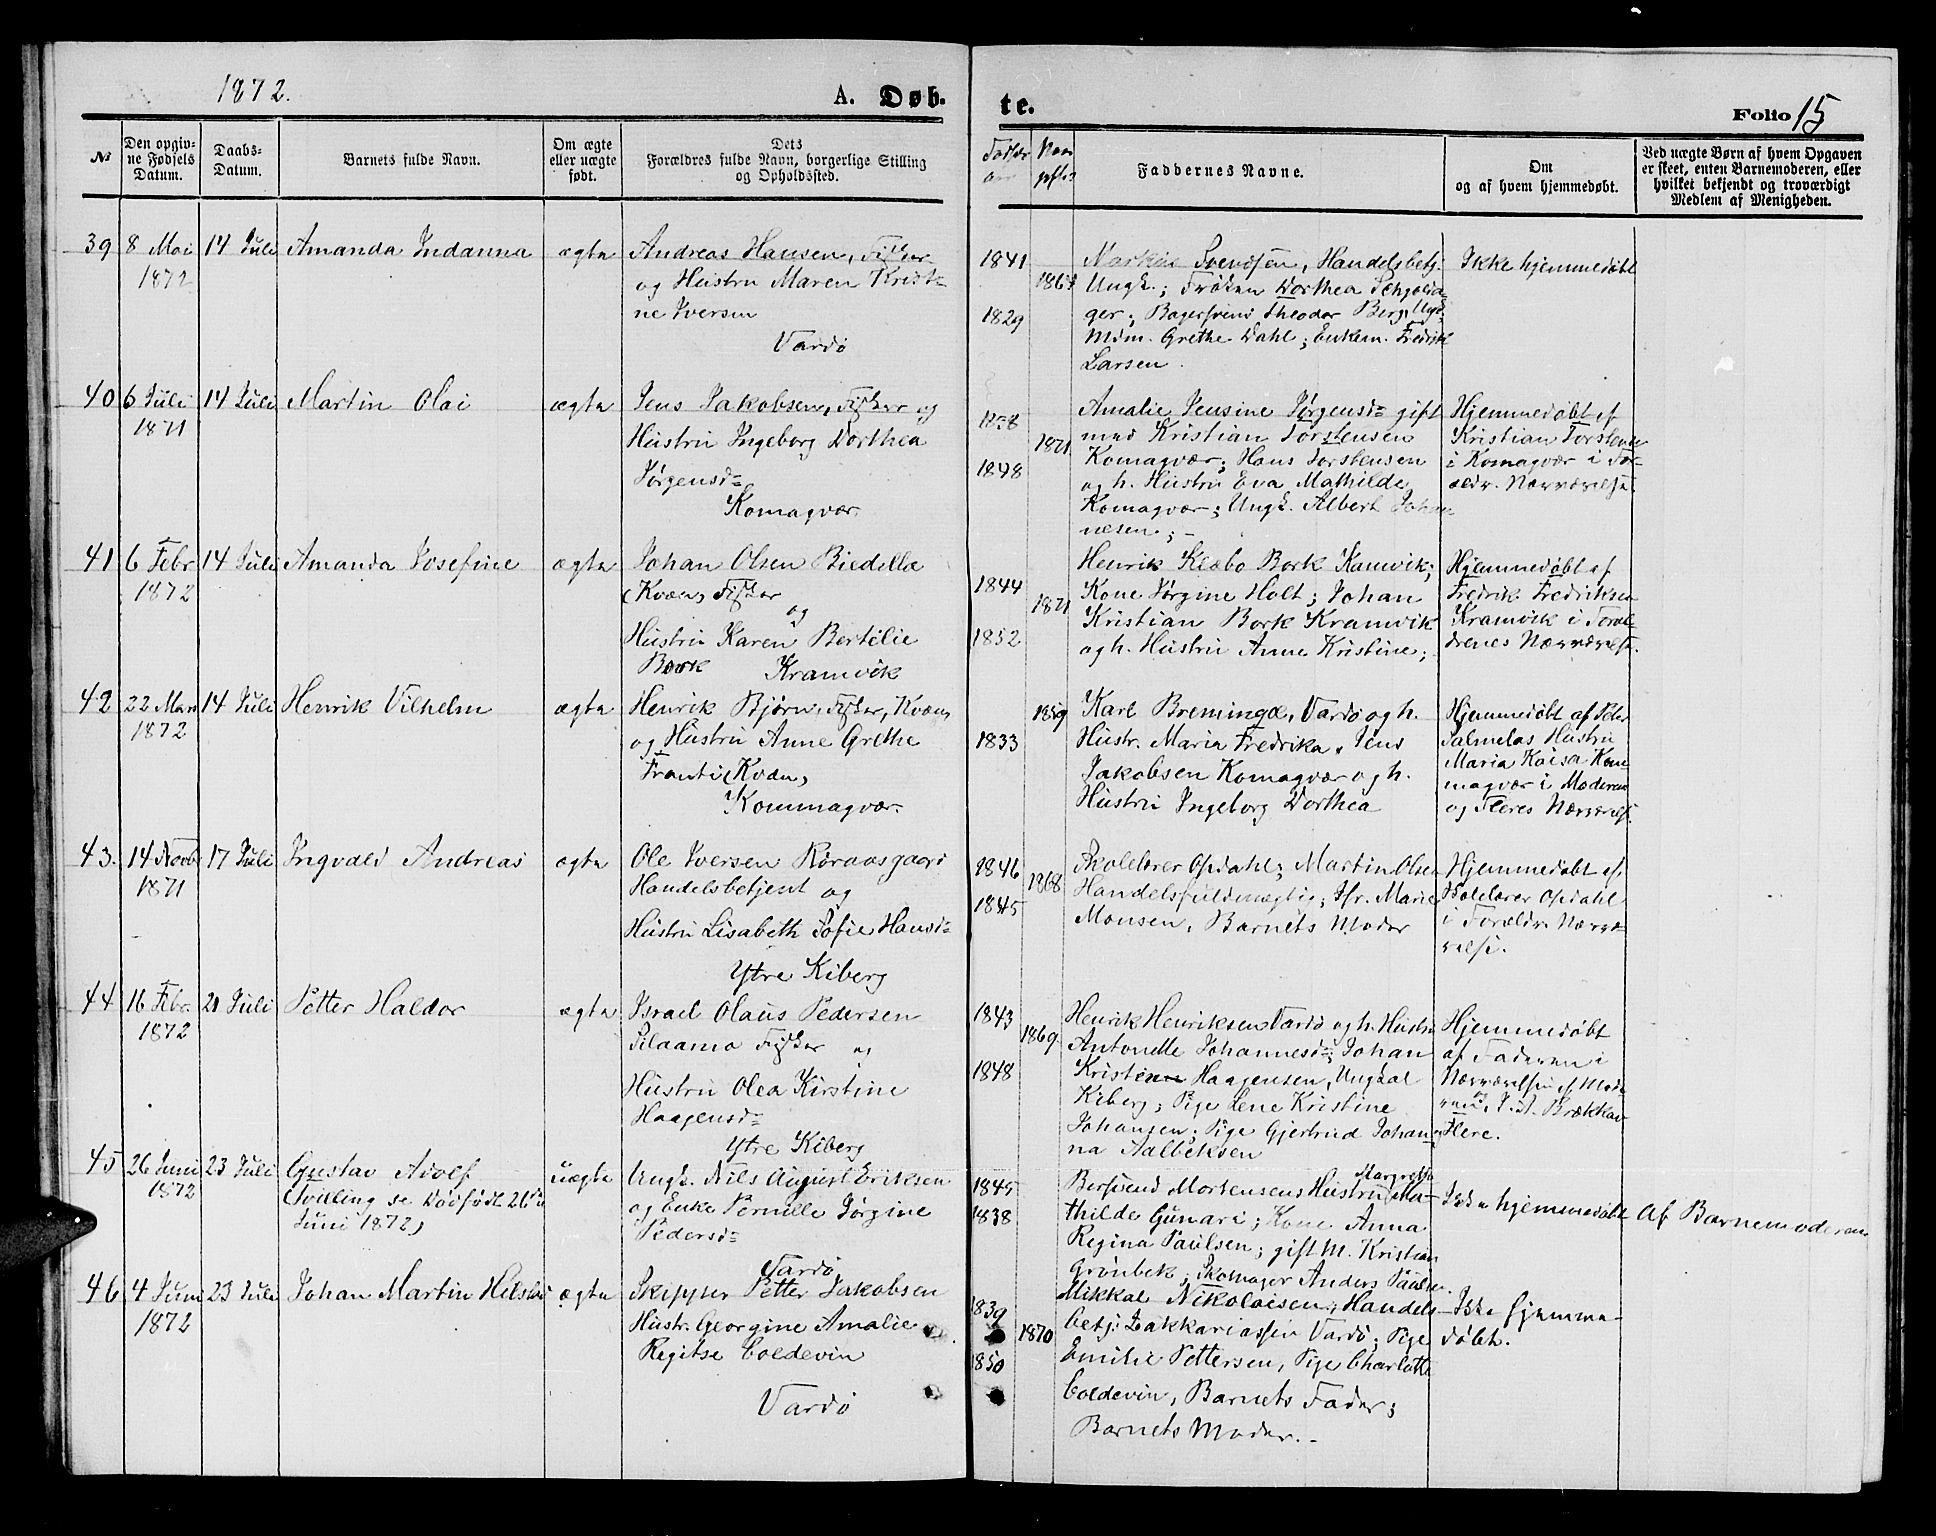 1872.
A. Døb-
te.
Folio 15
№
Den opgiv-
ne Fødsels
Datum.
Daabs-
Datum.
Barnets fulde Navn.
Om ægte
eller uægte
født.
Dets
Forældres fulde Navn, borgerlige Stilling
og Opholdssted.
Faddernes Navne.
Om
og af hvem hjemmedøbt.
Ved uægte Børn af hvem Opgaven
er skeet, enten Barnemoderen, eller
hvilket bekjendt og troværdigt
Medlem af Menigheden.
39
8 Mai
1872
14 Juli
Amanda Indanna
ægte
Andreas Hansen, Fisker
og Hustru Maren Kristi-
ne Iversen
Vardø
1841
1829
Svendsen, Handelsbetj.
Ungk.; Frøken Dorthea
ger; Bagersvend Theodor Berg, Ungk.
Mdm. Grethe Dahl; Enkem. Fredrik
Larsen.
Ikke hjemmedøbt
40
6 Juli
1871
14 Juli
Martin Olai
ægte
Jens Jakobsen, Fisker og
Hustru Ingeborg Dorthea
Jørgensd=
Komagvær.
1848
1871
Amalie Jensine Jørgensd= gift
med Kristian Torstensen
Komagvær; Hans Torstensen
og h. Hustru Eva Mathilde
Komagvær; Ungk. Albert Johan-
nesen;
Hjemmedøbt af
Kristian Torstensen
i Komagvær i For-
ældr. Nærværelse.
41
6 Febr
1872
14 Juli
Amanda Josefine
ægte
Johan Olsen Biedilla
(Kvæn) Fisker
og
Hustru Karen Bertilie
Bork Kramvik
1844
1852
1871
Henrik Klæbo Bork Kamvik;
Kone Jørgine Holt; Johan
Kristian Bork Kramvik
og h. Hustru Anne Kristine;
Hjemmedøbt af
Fredrik Fredriksen
Kramvik i Foræl-
drenes Nærværelse.
42
22 Mars
1872
14 Juli
Henrik Vilhelm
ægte
Henrik Bjørn, Fisker, Kvæn,
og Hustru Anne Grethe
Franti (Kvæn)
Kommagvær.
1833
1859
Karl Breminga, Vardø og h.
Hustr. Maria Fredrika, Jens
Jakobsen Komagvær og h.
Hustru Ingeborg Dorthea
Hjemmedøbt af Peter
Salmelas Hustru
Maria Kaisa Kom-
magvær i Moderens
og Fleres Nærværelse.
43.
14 Novb
1871
17 Juli
Ingvald Andreas
ægte
Ole Iversen Røraasgaard
Handelsbetjent og
Hustru Lisabeth Sofie Hansd=
Ytre Kiberg
1846
1845
1868
Skolelærer Opdahl; Martin Olsen
Handelsfuldmægtig; Jfr. Marie
Monsen, Barnets Moder
Hjemmedøbt af
Skolelærer Opdahl
i Forældr. Nærvæ-
relse.
44
16 Febr.
1872
21 Juli
Petter Haldor
ægte
Israel Olaus Pedersen
Silaamo Fisker og
Hustru Olea Kirstine
Haagensd=
Ytre Kiberg
1843
1848
1869
Henrik Henriksen Vardø og h. Hustru
Antonette Johannesd=; Johan
Haagensen, Ungkal
Kiberg; Pige Lene Kristine
Johansen; Pige Gjertrud Johan-
na Aalbeksen
Hjemmedøbt
af Faderen i
Nærværelse af Mode-
ren, Brækkan
og Flere.
45
26 Juni
1872
23 Juli
Gustav Adolf
(Tvilling se Dødfødt 26de
Juni 1872)
uægte
Ungk. Nils August Eriksen
og Enke Pernille Jørgine
Pedersd=
Vardø
1845
1838
Margrethe
Mortensens Hustru Ma-
thilde Gunari; Kone Anna
Regina Paulsen; gift M. Kristian
Grønbek; Skomager Anders Paulsen.
Ikke hjemmedøbt
Af Barnemoderen
46
4 Juni
1872
23 Juli
Johan Martin Hilstad
ægte
Skipper Petter Jakobsen
Hustr. Georgine Amalie
Regitse Coldevin
Vardø
1839
1850
1870
Mikkal Nikolaisen, Handels-
betj: Zakkariassen Vardø; Pige
Emilie Pettersen, Pige Charlotte
Coldevin, Barnets Fader;
Barnets Moder.-
Ikke hjemme-
døbt.